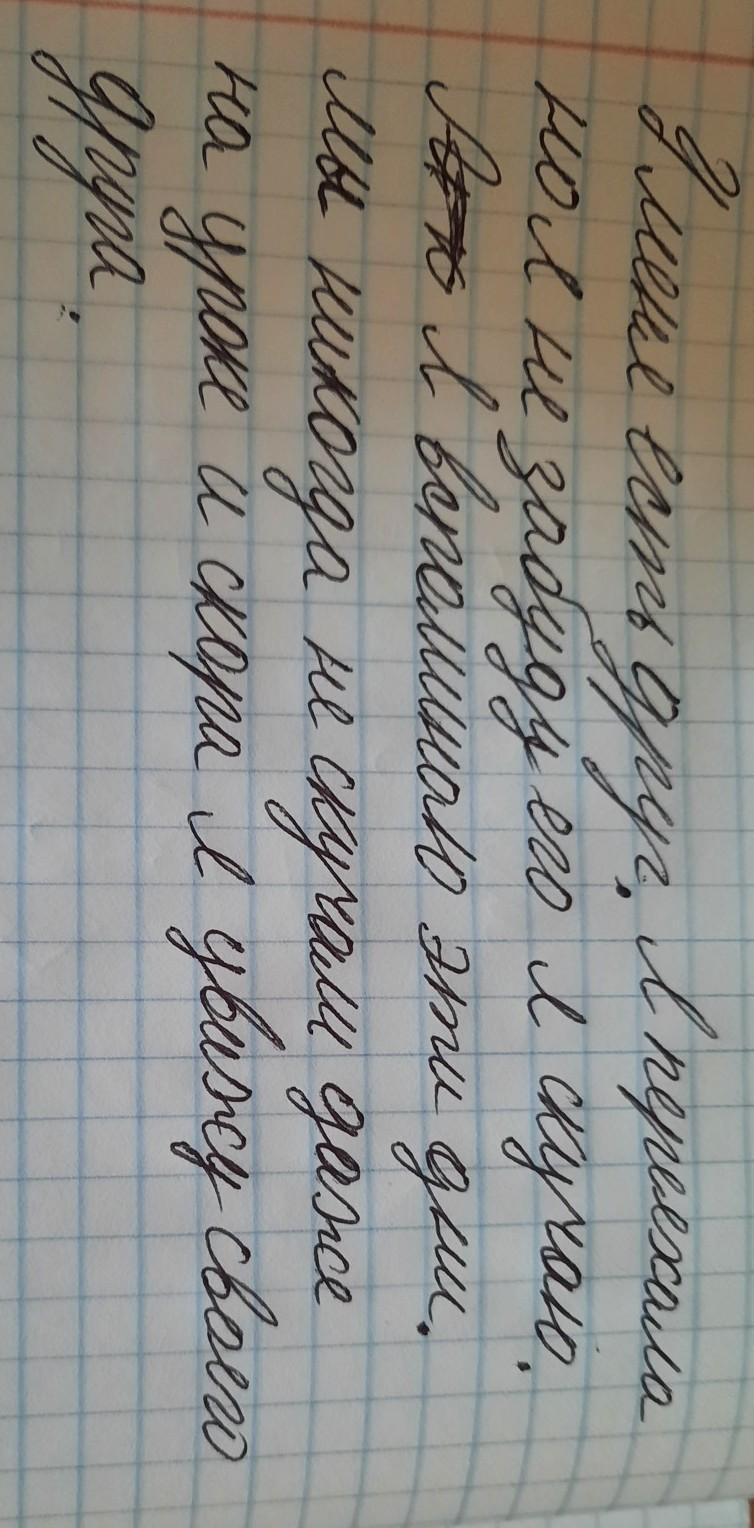 У меня есть друг. Я переехала
но я не забуду его я скучаю.
я вспоминаю эти дни.
мы никогда не скучали даже
на уроке и скора я увижу своего
друга.